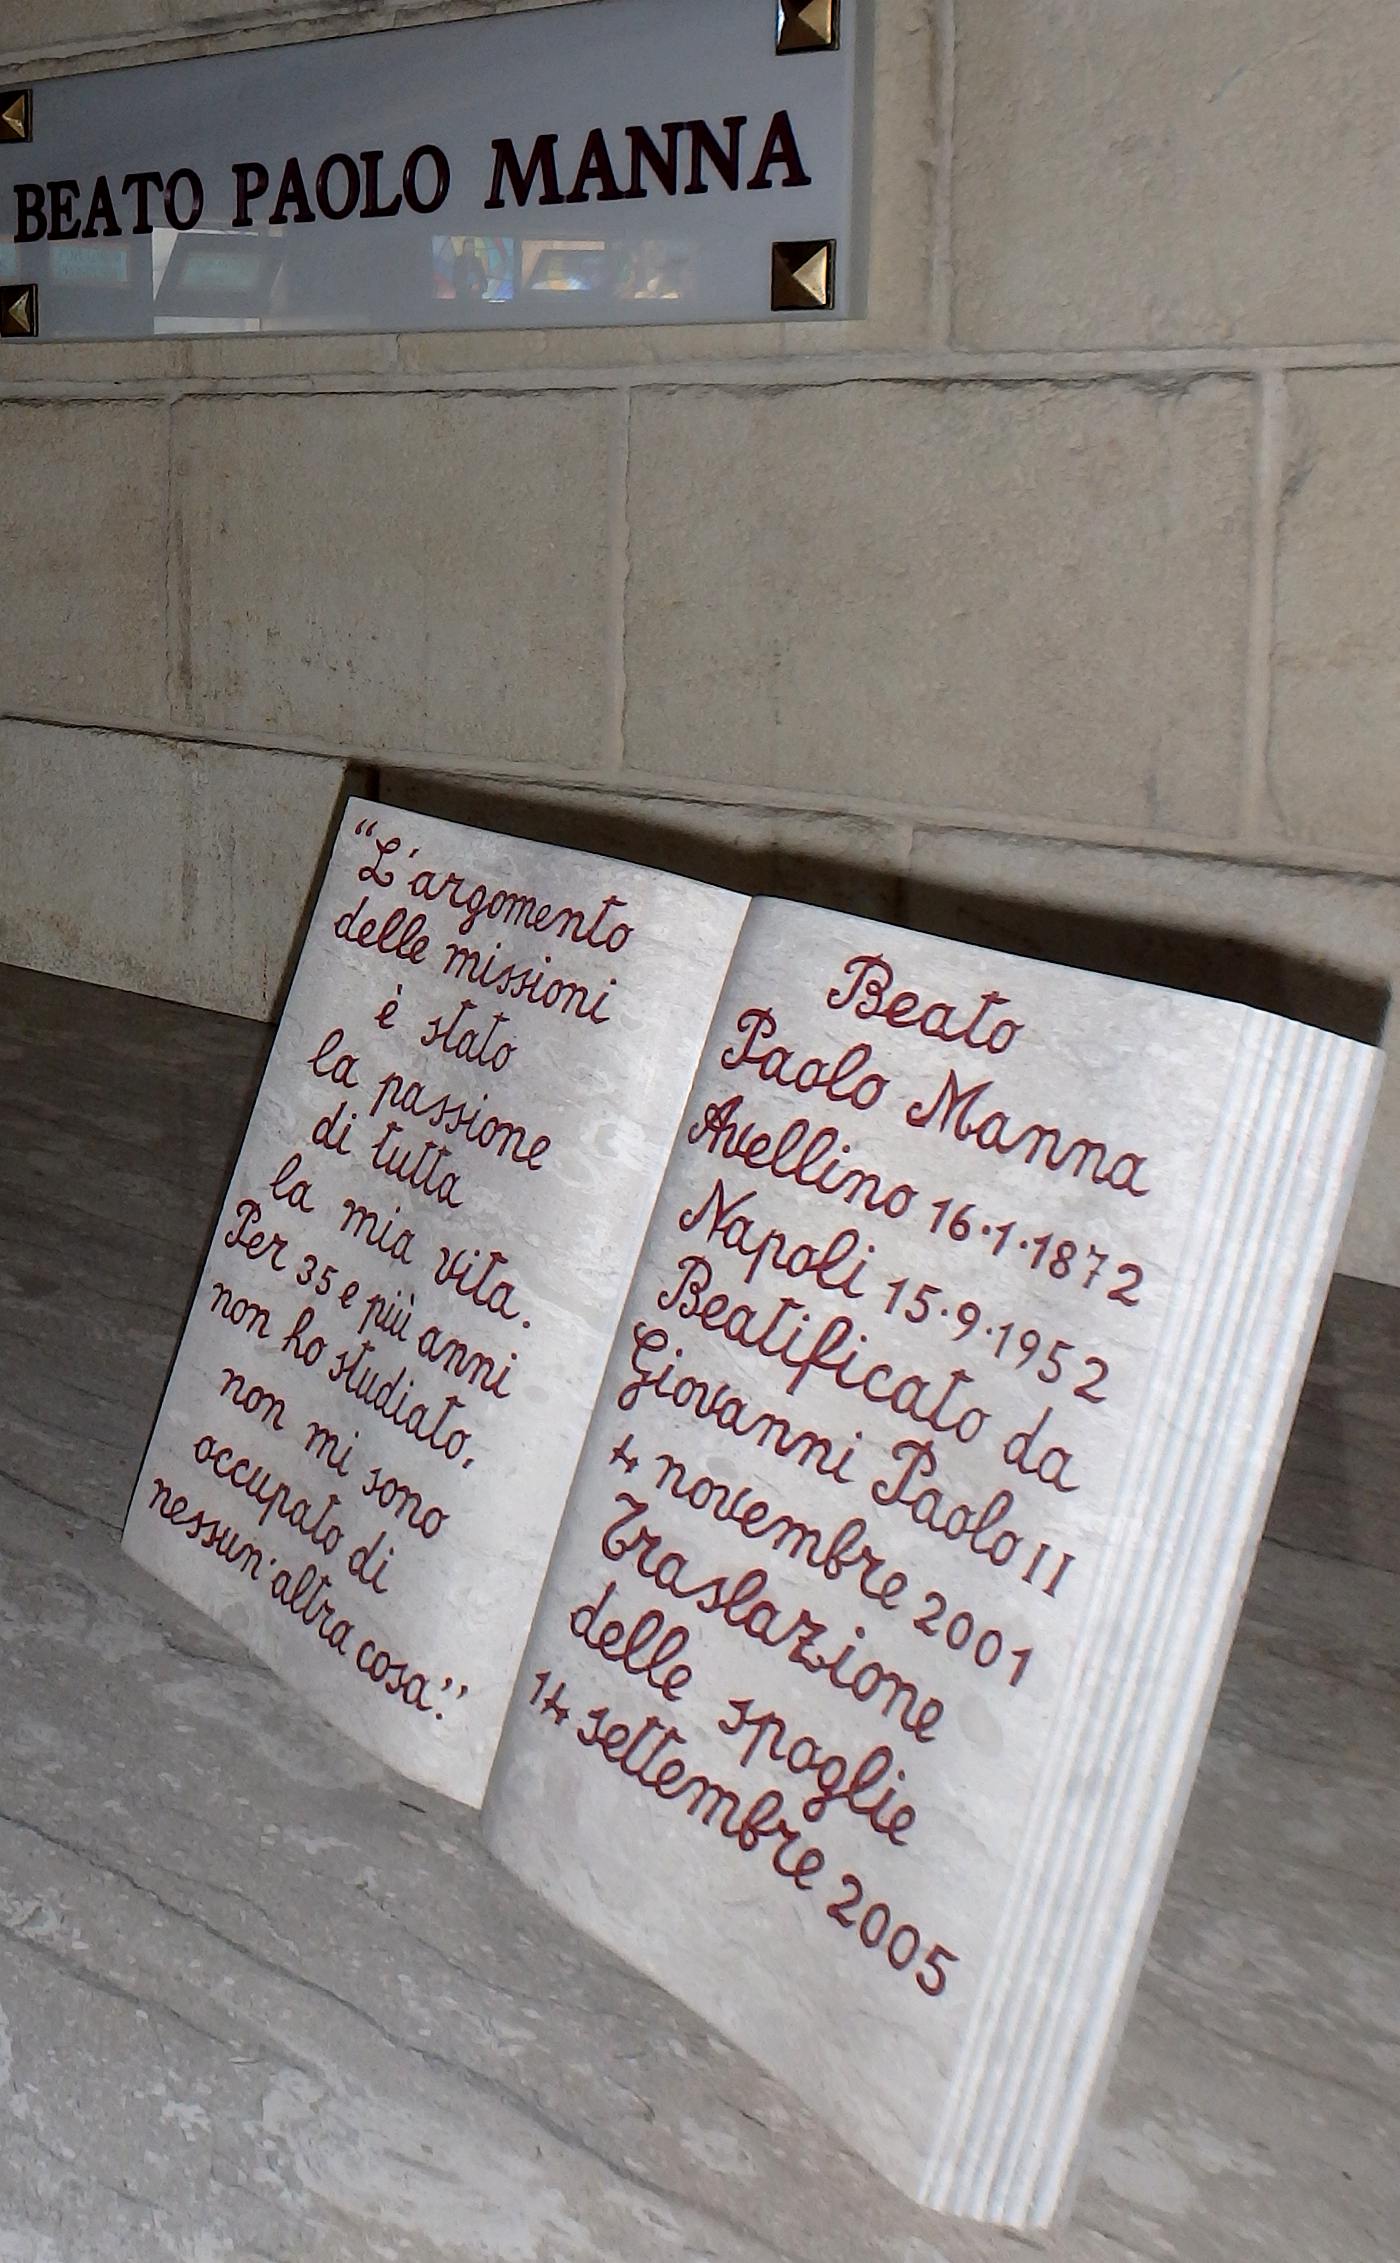 BEATO PAOLO MANNA
“L'argomento
delle missioni
è stato
la passione
di tutta
la mia vita.
Per 35 e più anni
non ho studiato,
non mi sono
occupato di
nessun'altra cosa.”
Beato
Paolo Manna
Avellino 16·1·1872
Napoli 15·9·1952
Beatificato da
Giovanni Paolo II
4 novembre 2001
Traslazione
delle spoglie
14 settembre 2005